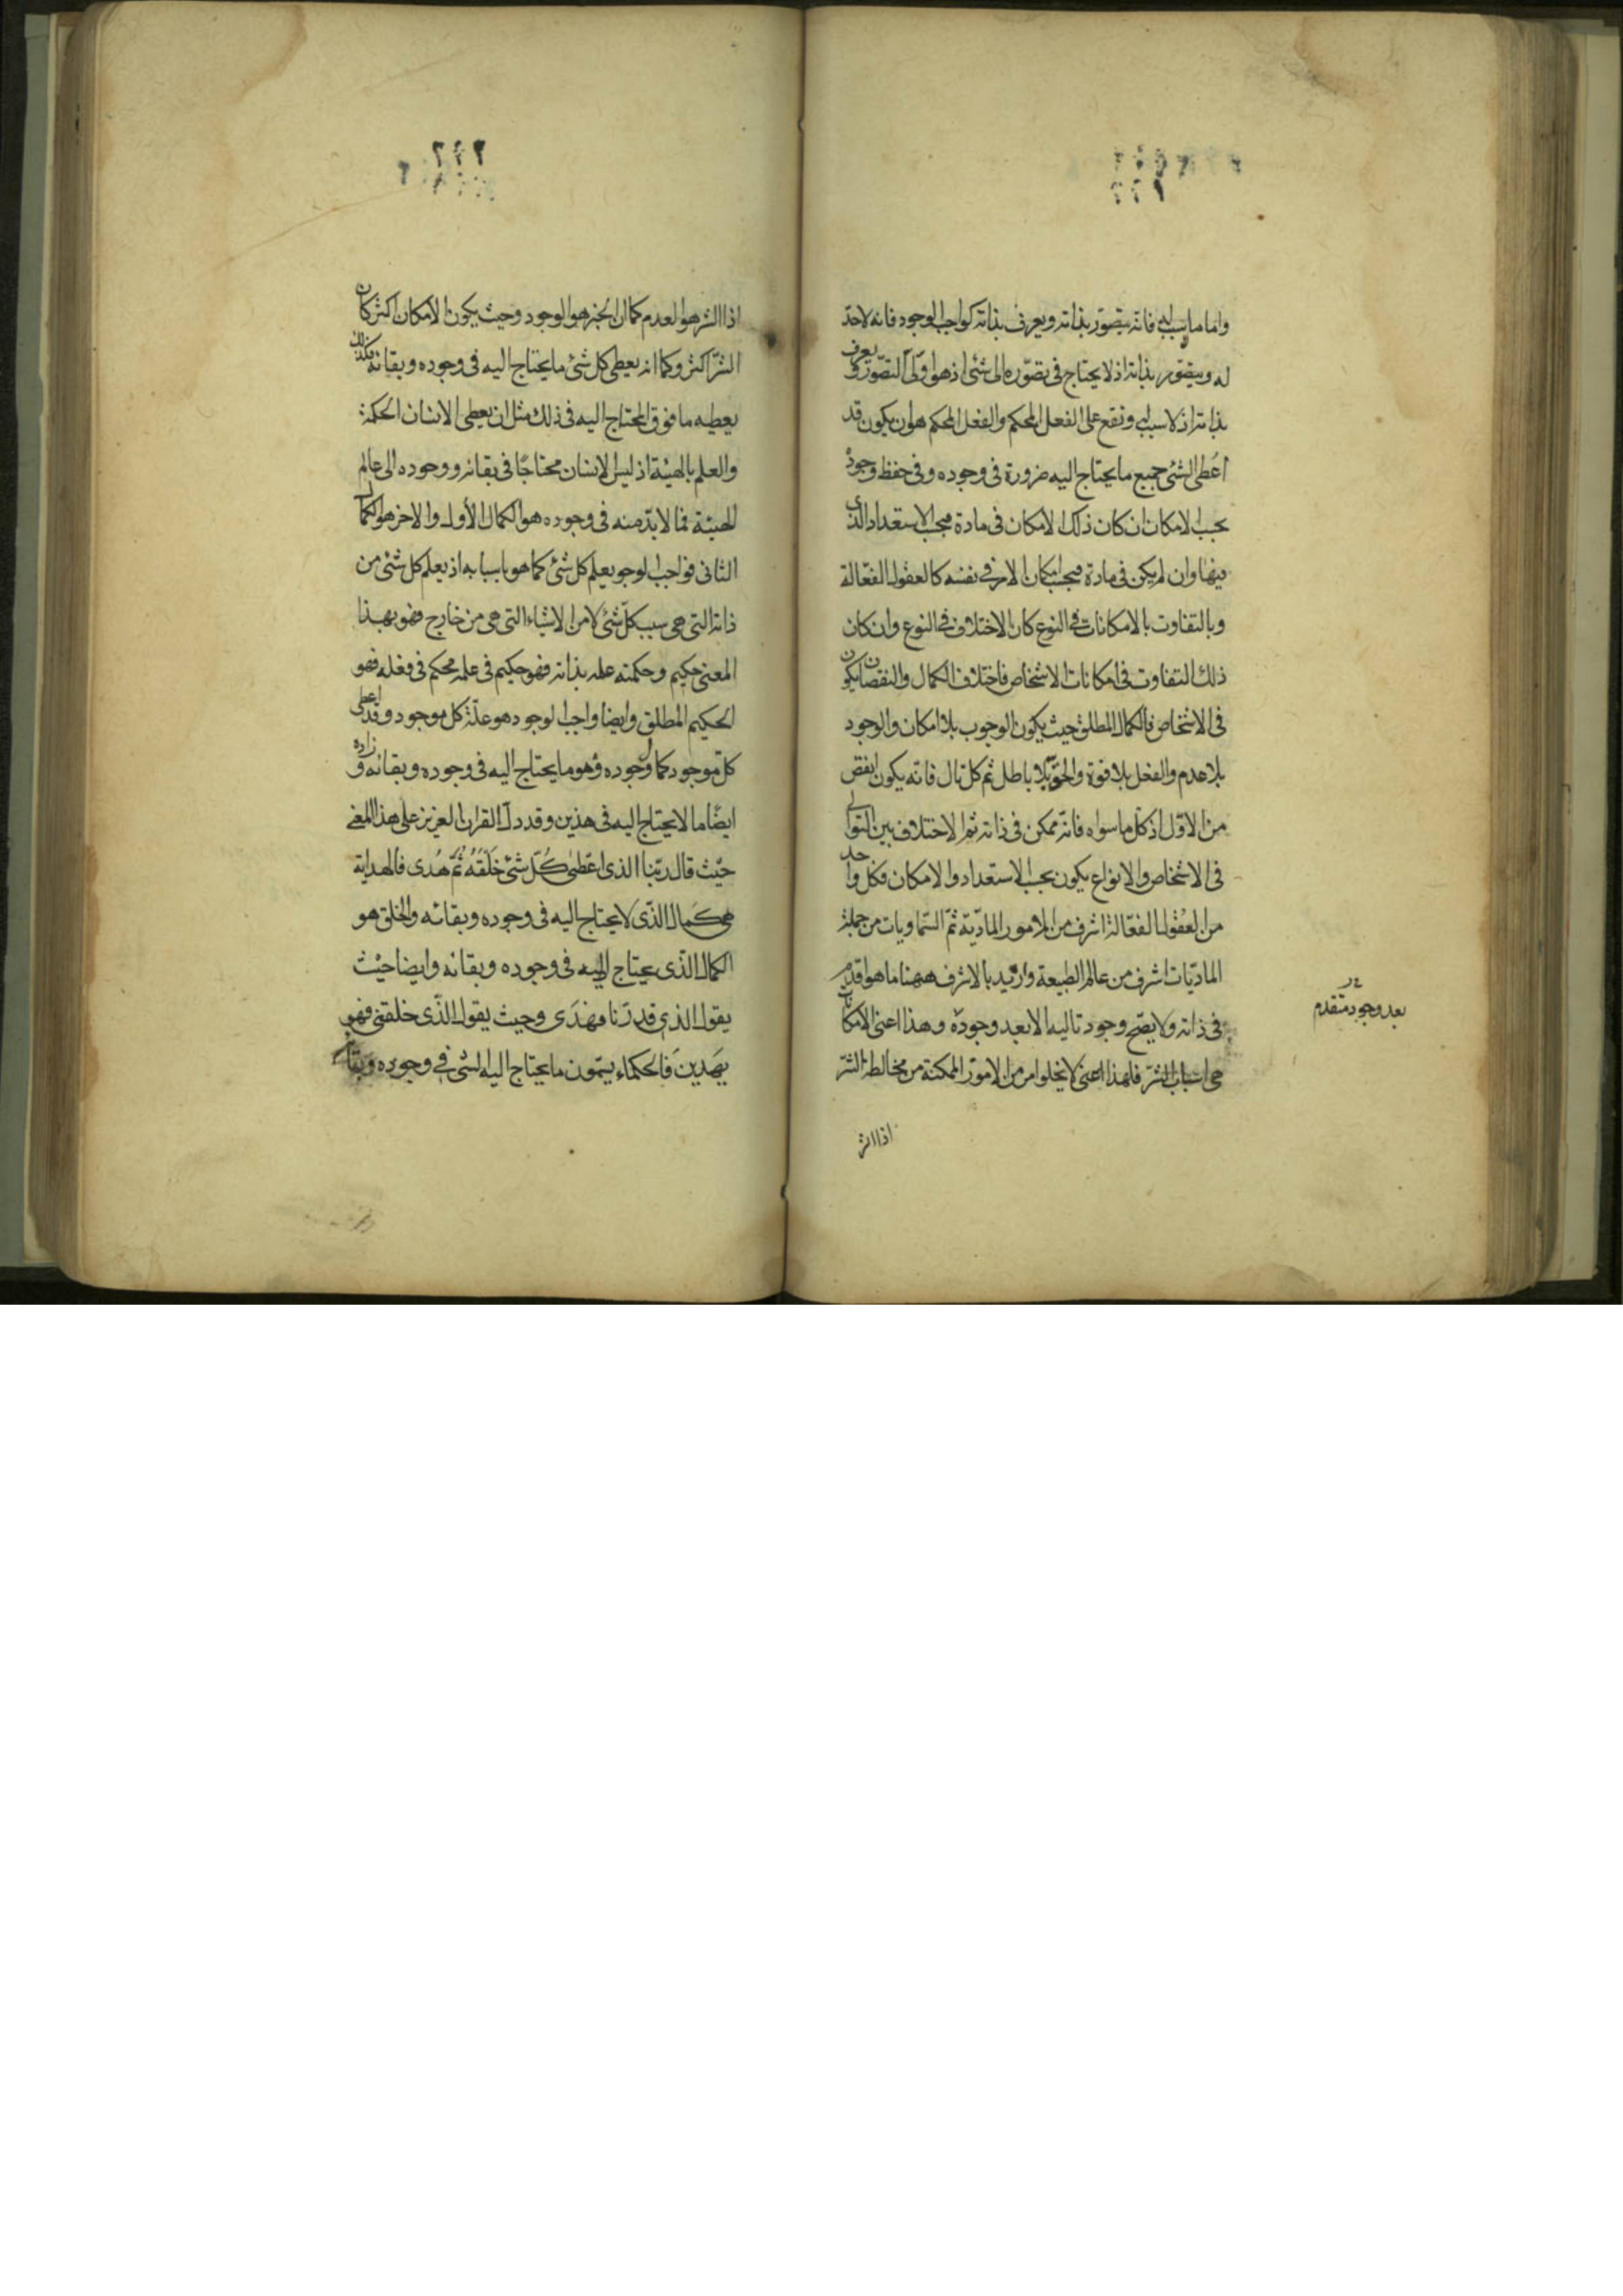 واما ما لا سبب له فانه يتصور بذاته ويعرف بذاته كواجب الوجود فانه لا حد
له ويتصور بذاته اذ لا يحتاج فى تصوره الى شئ اذ هو اولى التصور ويعرف
بذاته اذ لا سبب له وتقع على الفعل المحكم والفعل المحكم هو ان يكون قد
اعطى الشئ جميع ما يحتاج اليه ضرورة فى وجوده وفى حفظ وجوده
بحسب الامكان ان كان ذلك الامكان فى مادة فبحسب الاستعداد الذى
فيها وان لم يكن فى مادة فبحسب امكان الامر فى نفسه كالعقول الفعالة
وبالتفاوت بالامكانات فى النوع كان الاختلاف فى النوع وان كان
ذلك التفاوت فى امكانات الاشخاص فاختلاف الكمال والنقصان يكون
فى الاشخاص فالكمال المطلق حيث يكون الوجوب بلا امكان والوجود
بلا عدم والفعل بلا قوة والحق بلا باطل ثم كل تال فانه يكون انقص
من الاول اذ كل ما سواه فانه ممكن فى ذاته ثم الاختلاف بين التوالى
فى الاشخاص والانواع يكون بحسب الاستعداد والامكان فكل واحد
من العقول الفعالة اشرف من الامور المادية ثم السماويات من جملة
الماديات اشرف من عالم الطبيعة واريد بالاشرف ههنا ما هو اقدم
فى ذاته ولا يصح وجود تاليه الا بعد وجوده وهذا اعنى الامكانات
هى اسباب الشر فلهذا اعنى لا يخلوا امر من الامور الممكنة من مخالطة الشر
بعد وجود متقدم
اذا الشر
٢٢٢
اذا الشر هو العدم كما ان الخير هو الوجود وحيث يكون الامكان اكثر كان
الشر اكثر وكما انه يعطى كل شئ ما يحتاج اليه فى وجوده وبقائه فكذلك
يعطيه ما فوق المحتاج اليه فى ذلك مثل ان يعطى الانسان الحكمة
والعلم بالهيئة اذ ليس الانسان محتاجا فى بقائه ووجوده الى عالم
الهيئة فما لا بد منه فى وجوده هو الكمال الأول والاخر هو الكمال
الثانى فواجب الوجو يعلم كل شئ كما هو باسبابه اذ يعلم كل شئ من
ذاته التى هى سبب كل شئ لا من الاشياء التى هى من خارج فهو بهذا
المعنى حكيم وحكمته علمه بذاته فهو حكيم فى علمه محكم فى فعله فهو
الحكيم المطلق وايضا واجب الوجود هو علة كل موجود وقد اعطى
كل موجود كمال وجوده وهو ما يحتاج اليه فى وجوده وبقائه وزاده
ايضا ما لا يحتاج اليه فى هذين وقد دل القران العزيز على هذا المعنى
حيث قال ربنا الذى اعطى كُلّ شئ خَلْقَهُ ثُمّ هُدى فالهداية
هى كمال الذى لا يحتاج اليه فى وجوده وبقائه والخلق هو
الكمال الذى يحتاج اليه فى وجوده وبقائه وايضا حيث
يقول الذى قدرنا فهدَى وحيث يقول الذى خلقنى فهو
يهَدين فالحكماء يسمون ما يحتاج اليه الشئ فى وجوده وبقائه